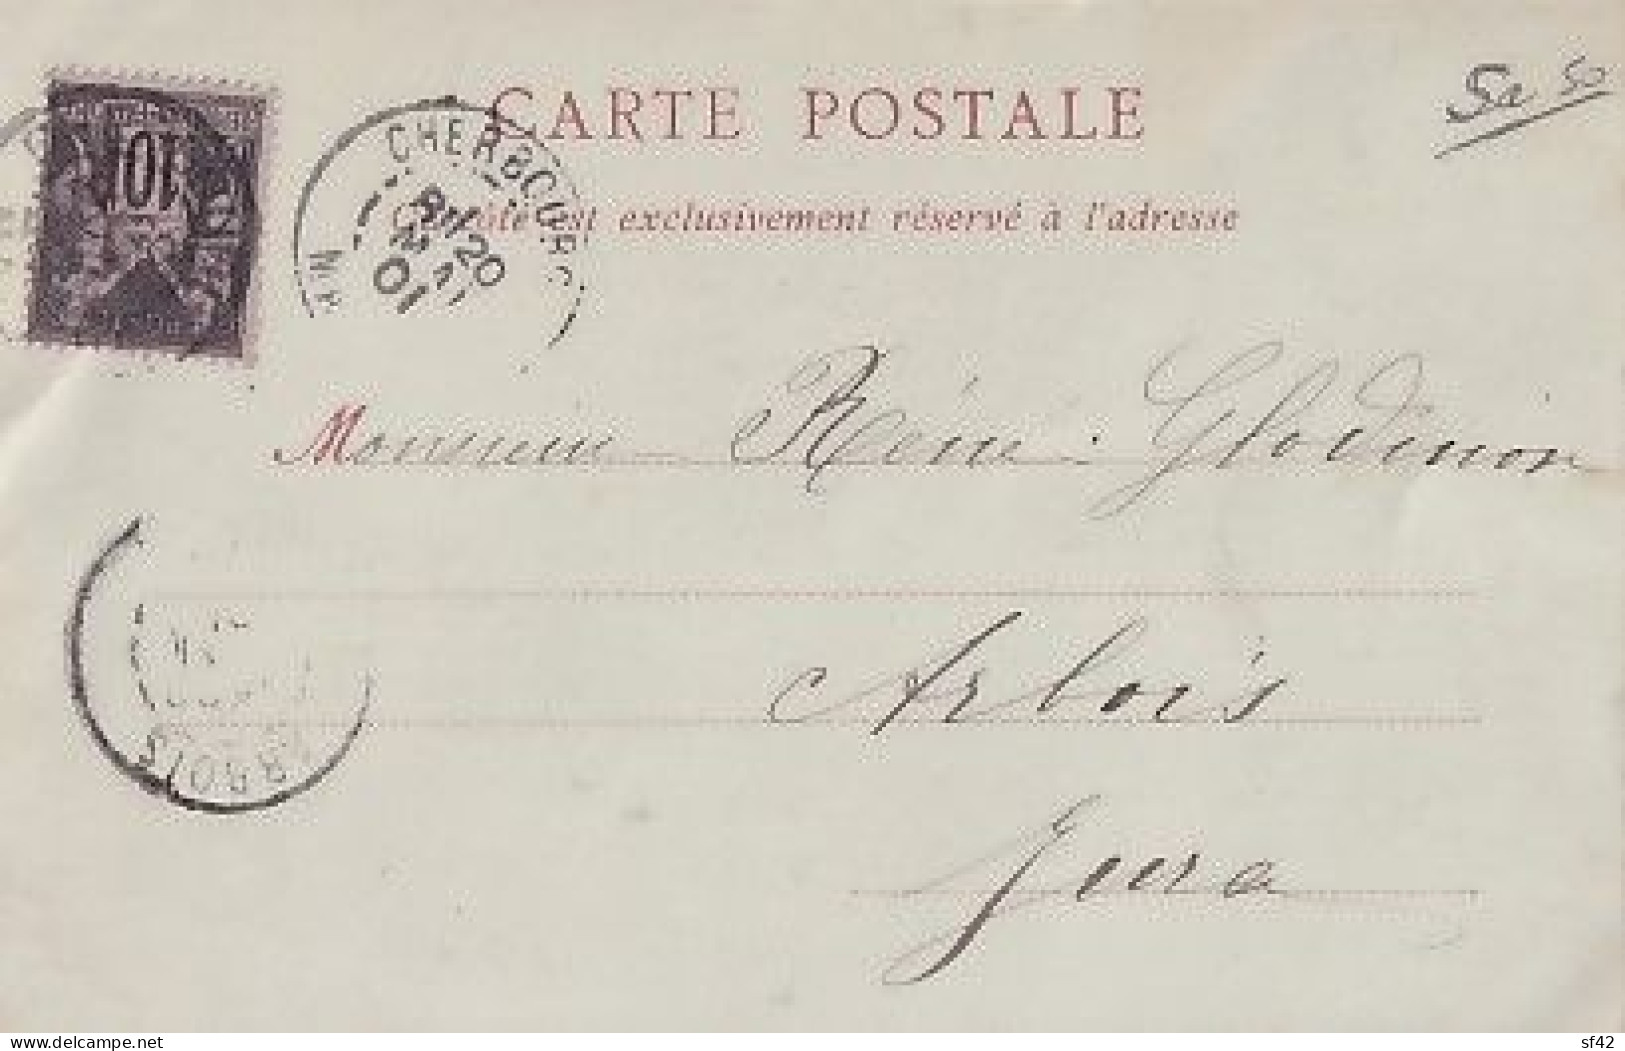 CARTE POSTALE
5e 50
10
CHERBOURG
20
01
Ce côté est exclusivement réservé à l'adresse
Monsieur René Glodinon
Arbois
ARBOIS
Jura
delcampe.net
sf42